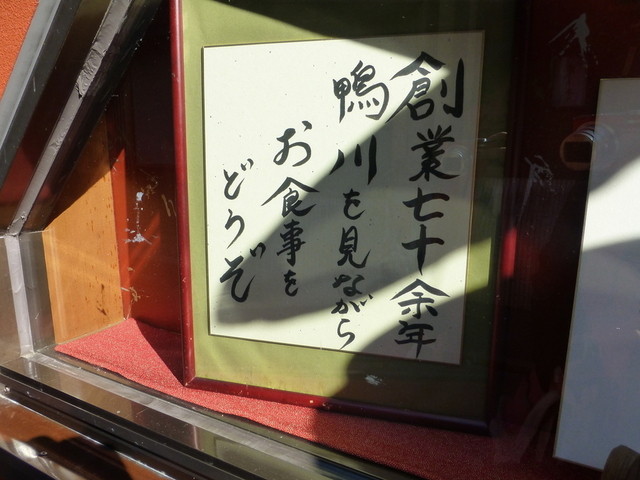 創業七十余年
鴨川を見ながら
お食事を
どうぞ